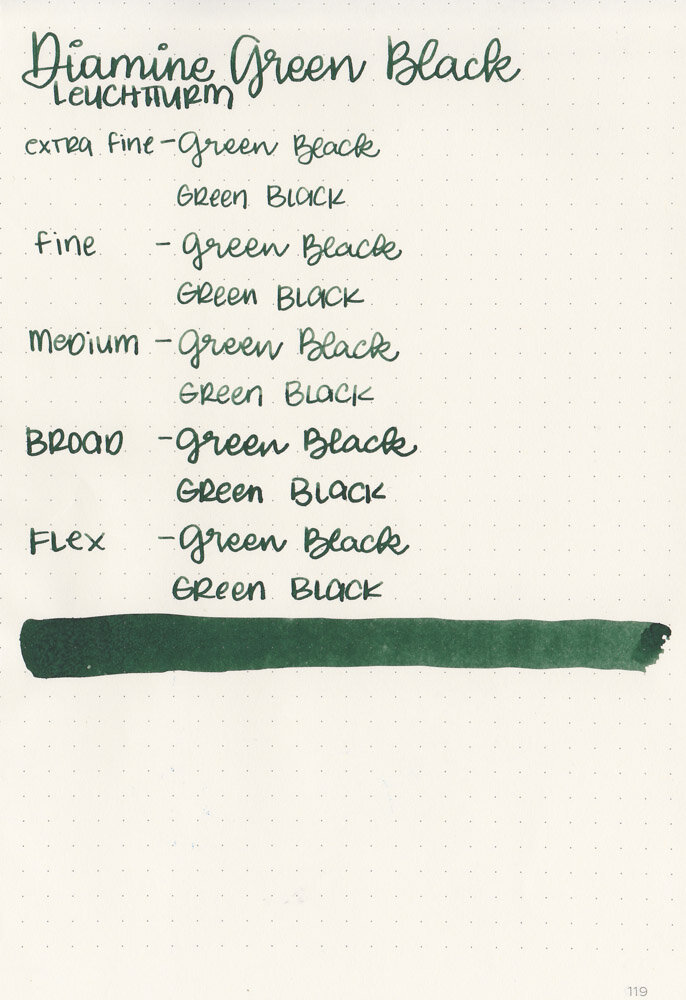 Diamine Green Black
LEUCHTTURM
extra fine - Green Black
GReen BLACK
fine - green Black
GReen BLACK
Medium - Green Black
GReen BLACK
BROAD - Green Black
GReen BLACK
FLex - Green Black
GReen BLACK
119